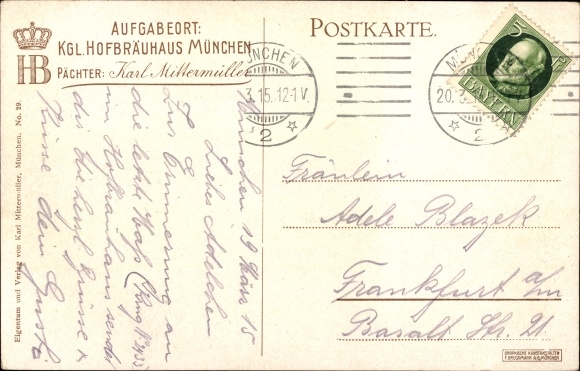 AUFGABEORT:
KGL. HOFBRÄUHAUS MÜNCHEN
HB
PÄCHTER: Karl Mittermüller
POSTKARTE.
MÜNCHEN
3.15.12-1V.
2
MÜN
20.3
2
5 PF
BAYERN
München 19 März 15
Liebes Adelchen
Zur Erinnerung an
die letzte Maß (Krug N
im Hofbräuhaus sendet
dir Grüsse &
Küsse dein Gustl
Fräulein
Adele Blazek
Frankfurt a/m
Basalt Str. 21.
Eigentum und Verlag von Karl Mittermüller, München. No. 29.
GRAPHISCHE KUNSTANSTALTEN
F. BRUCKMANN A.G. MÜNCHEN